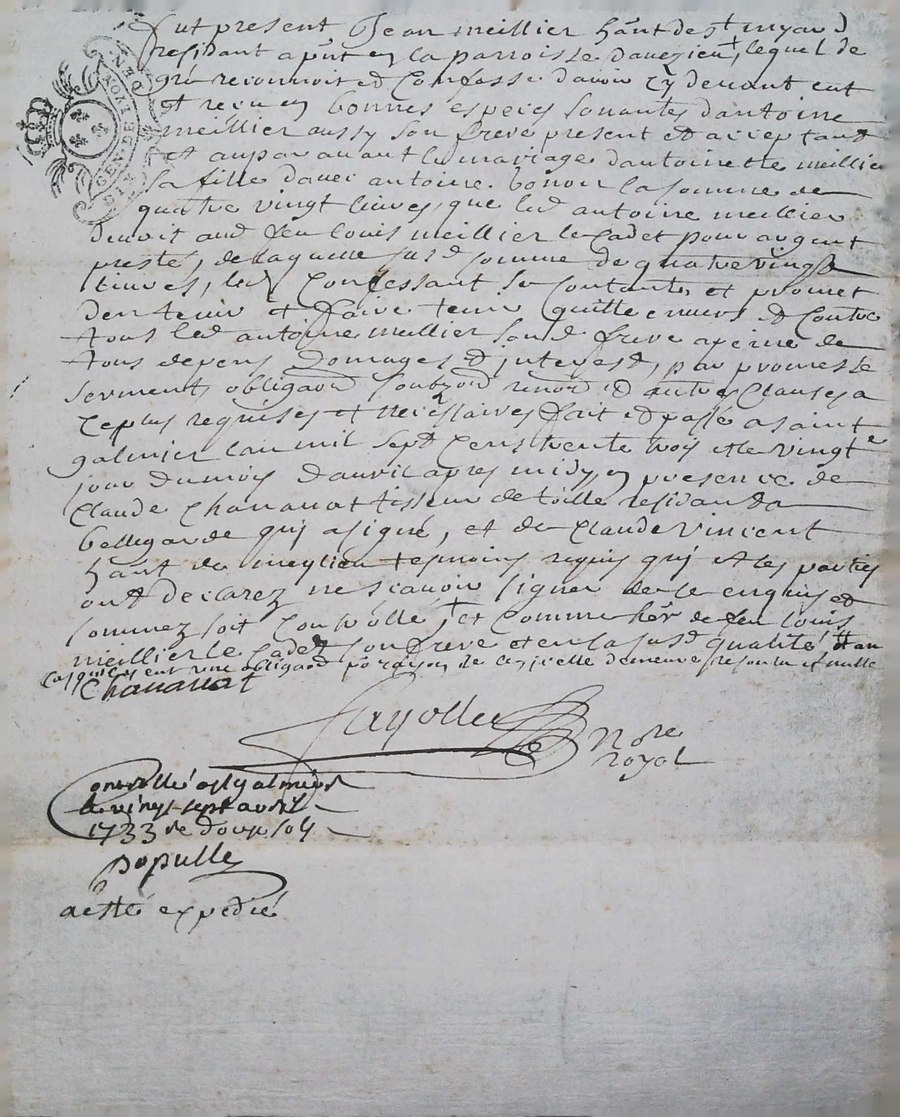 fut present Jean meillier hant de st myard
residant a pnt en la parroisse davezieu, lequel de
gre reconnoit et Confesse davoir cy devant eut
et reçu en bonnes especes sonantes dantoine
meillier aussy son frere present et acceptant
et auparavant le mariage dantoinette meillier
sa fille davec antoine la somme de
quatre vingt livres, que led antoine meillier
devoit aud feu louis meillier le Cadet pour argent
presté, de laquelle susd somme de quatre vingt
livres, led Confessant se Contante et promet
den tenir et faire tenir quitte envers et Contre
tous led antoine meillier sond frere a peine de
tous depens domages et interest, par promesse
serment, obligaon soubzon renon et autres Clauses a
ce plus requises et necessaires fait et passé a saint
galmier lan mil sept Cens trente trois et le vingte
jour du mois davril apres midy en presence de
Claude Chananat tisseur de toille residant a
bellegarde qui a signé, et de Claude Vincent
hant de meylieu tesmoins requis qui et les parties
ont declarez ne scavoir signer de ce enquis et
sommez soit Controllé, et Comme her de feu louis
meillier le Cadet son frere et en la susd qualité, et au
cas qu'il y eut une obligaon po raison de ce icelle demeure resolu et nulle
Chananat
fayolle nore
royal
DE LYON
GENER
Controllé a st galmier
le vingt sept avril
1733 Re douze sols
Populle
a esté expedié